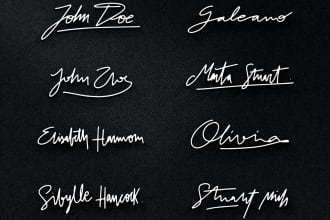 John Doe
Galeano
John
Marta Stuart
Elisabeth
Olivia
Sibylle Hancock
Stuart